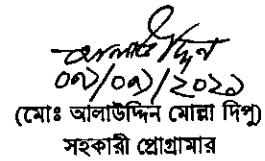 আলাউদ্দিন
০৭/০৭/২০২১
(মোঃ আলাউদ্দিন মোল্লা দিপু)
সহকারী প্রোগ্রামার